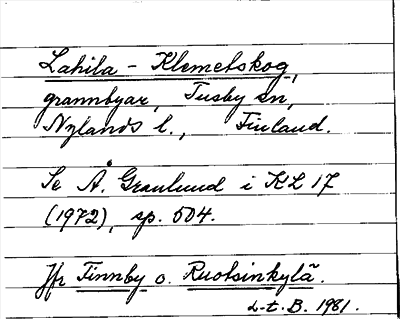 Lahila - Klemetskog,
grannbyar, Tusby sn,
Nylands l., Finland.
Se Å. Granlund i KL 17
(1972), sp. 504.
Jfr Finnby o. Ruotsinkylä.
L-t. B. 1981.